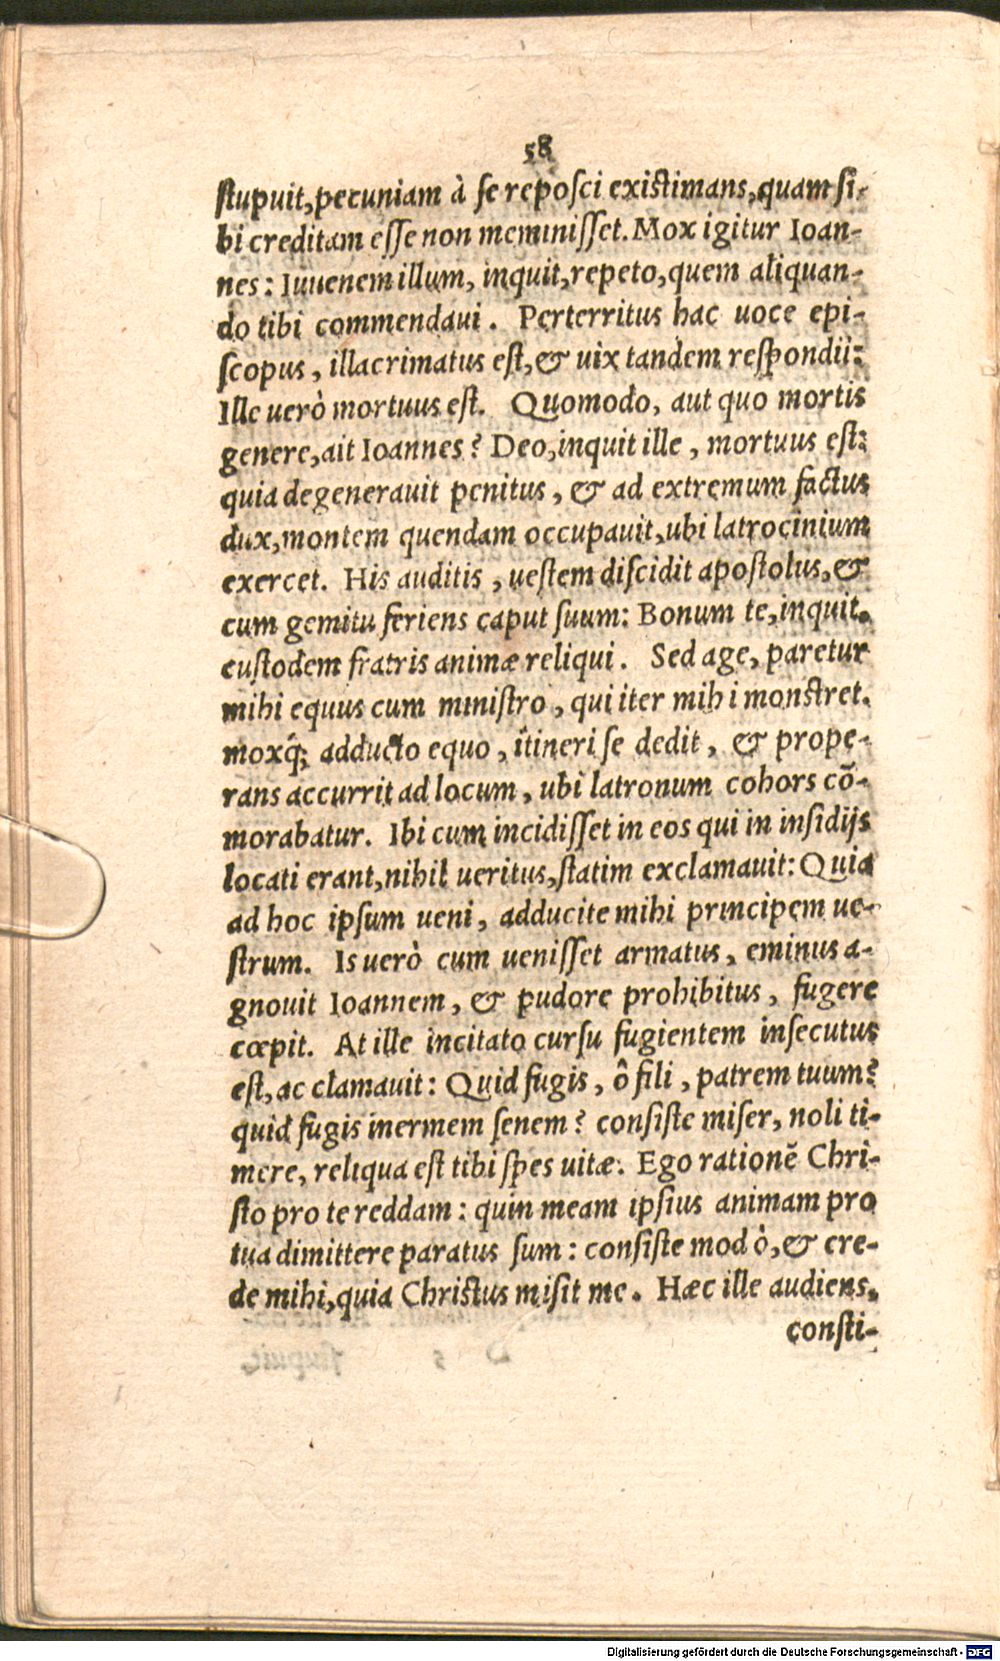 58
ſtupuit, pecuniam à ſe repoſci exiſtimans, quam ſi-
bi creditam eſſe non meminiſſet. Mox igitur Ioan-
nes: Iuuenem illum, inquit, repeto, quem aliquan-
do tibi commendaui. Perterritus hac uoce epi-
ſcopus, illacrimatus eſt, & uix tandem reſpondit:
Ille uerò mortuus eſt. Quomodo, aut quo mortis
genere, ait Ioannes? Deo, inquit ille, mortuus eſt:
quia degenerauit penitus, & ad extremum factus
dux, montem quendam occupauit, ubi latrocinium
exercet. His auditis, ueſtem diſcidit apoſtolus, &
cum gemitu feriens caput ſuum: Bonum te, inquit,
cuſtodem fratris animæ reliqui. Sed age, paretur
mihi equus cum miniſtro, qui iter mihi monſtret.
moxq́; adducto equo, itineri ſe dedit, & prope-
rans accurrit ad locum, ubi latronum cohors cō-
morabatur. Ibi cum incidiſſet in eos qui in inſidijs
locati erant, nihil ueritus, ſtatim exclamauit: Quia
ad hoc ipſum ueni, adducite mihi principem ue-
ſtrum. Is uerò cum ueniſſet armatus, eminus a-
gnouit Ioannem, & pudore prohibitus, fugere
cœpit. At ille incitato curſu fugientem inſecutus
eſt, ac clamauit: Quid fugis, ô fili, patrem tuum?
quid fugis inermem ſenem? conſiſte miſer, noli ti-
mere, reliqua eſt tibi ſpes uitæ. Ego rationē Chri-
ſto pro te reddam: quin meam ipſius animam pro
tua dimittere paratus ſum: conſiſte modò, & cre-
de mihi, quia Chriſtus miſit me. Hæc ille audiens,
conſti-
Digitalisierung gefördert durch die Deutsche Forschungsgemeinschaft - DFG